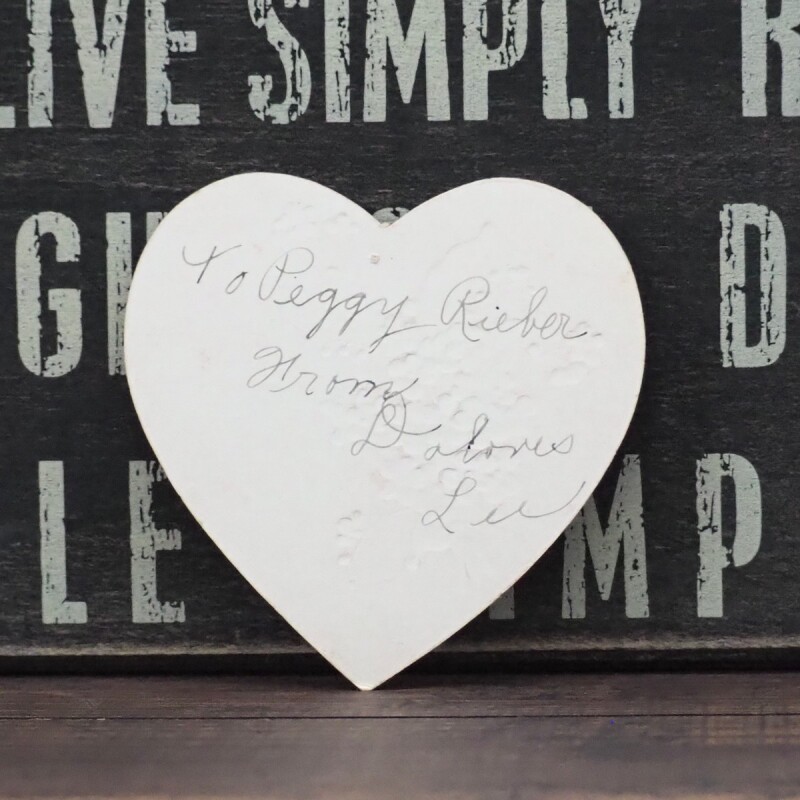 LIVE SIMPLY R
GH D
To Peggy Rieber.
From
Dolores
Lee
LE MP